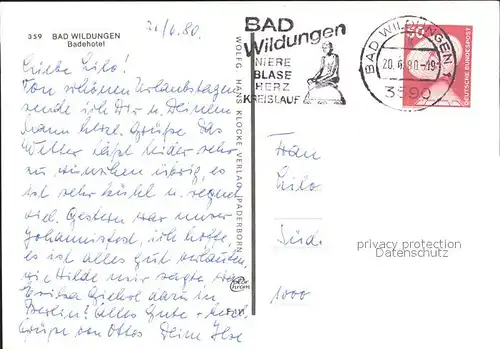 359 BAD WILDUNGEN
Badehotel
21/6.80.
BAD
Wildungen
NIERE
BLASE
HERZ
KREISLAUF
BAD WILDUNGEN 1
20.6.80-19
3590
50
DEUTSCHE BUNDESPOST
WOLFG. HANS KLOCKE VERLAG, PADERBORN
Liebe Lilo!
Von schönen Urlaubstagen
sende ich Dir u. Deinem
Mann herzl. Grüße. Das
Wetter läßt leider sehr
zu wünschen übrig, es
ist sehr kühl u. regnet
viel. Gestern war unser
Johannisfest, ich hoffe,
es ist alles gut verlaufen,
wie Hilde mir sagte war
darin in
Berlin! Alles Gute
Grüße von Ottos Deine Ilse
Frau
Lilo
Süd.
1000
privacy protection
Datenschutz